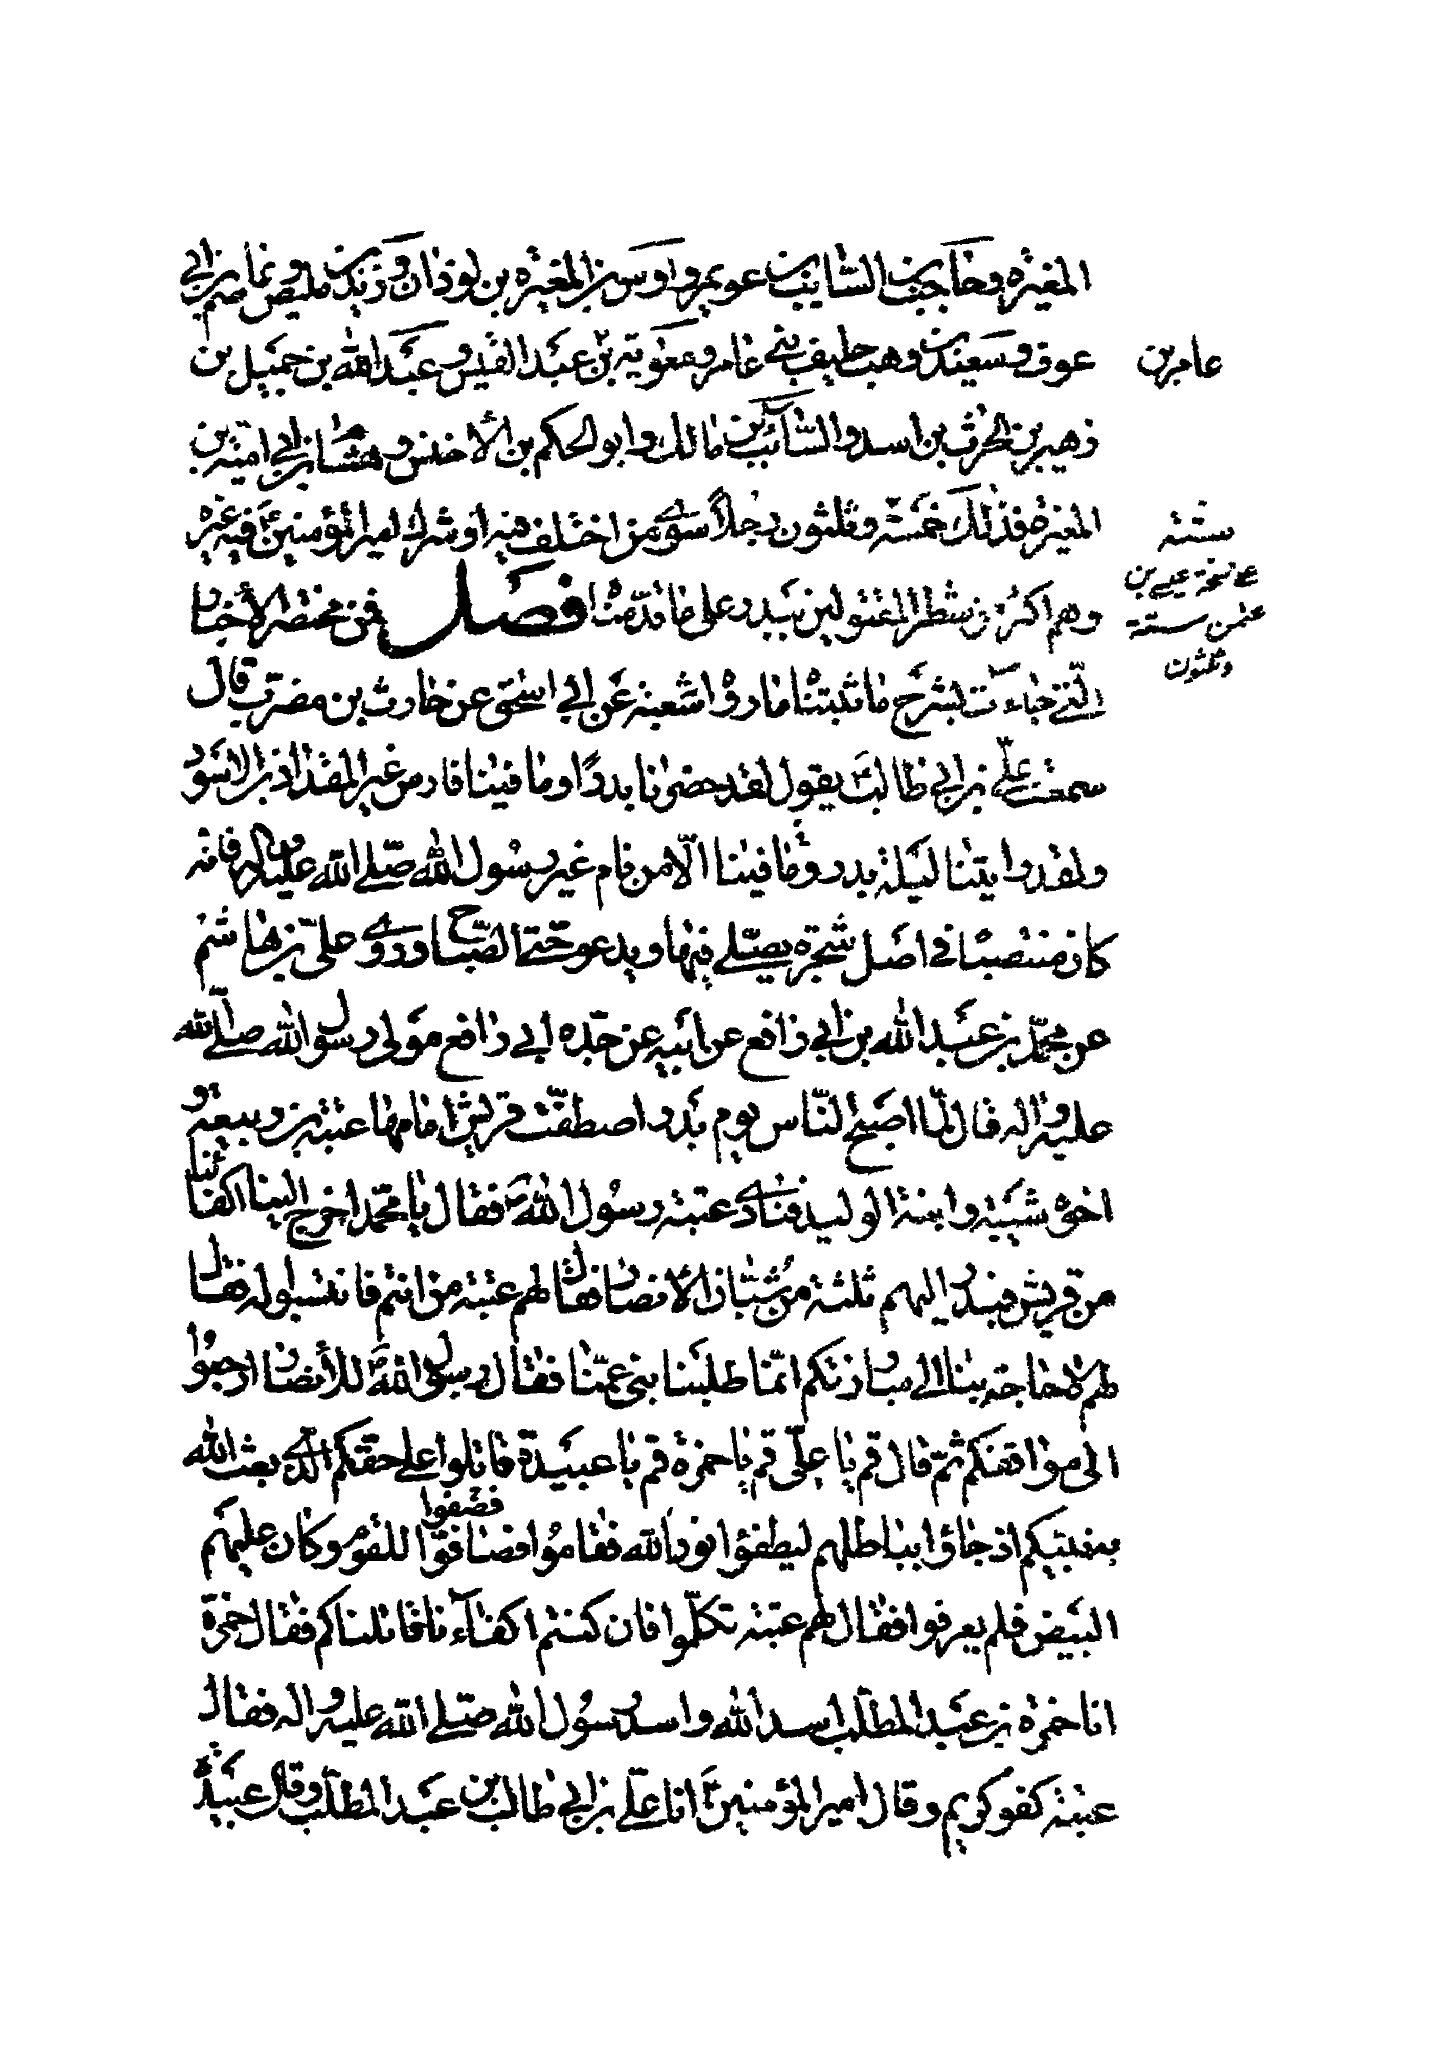 المغيرة وحاجب بن السايب بن عويمر واوس بن المغيرة بن لوذان وزيد بن مليص وعاصم بن ابى
عوف وسعيد بن وهب حليف بنى عامر ومعوية بن عبد القيس وعبد الله بن جميل بن
عامر بن
زهير بن الحرث بن اسد والسائب بن مالك وابو الحكم بن الأخنس وهشام بن ابى امية بن
المغيرة فذلك خمسة وثلثون رجلاً سوى من اختلف فيه او شرك امير المؤمنين فيه غيره
ستة
وهم اكثر من شطر المقتولين ببدر على ما قدمناه فصل فمن مختصر الأخبار
نسخة
بن
ستة
وثلثون
التى جاءت بشرح ما ثبتناه ما رواه شعبة عن ابى اسحق عن حارث بن مضرب قال
سمعت على بن ابى طالب يقول لقد حضرنا بدرًا وما فينا فارس غير المقداد بن الاسود
ولقد رايتنا ليلة بدر وما فينا الّا من نام غير رسول الله صلى الله عليه واله فانه
كان منتصبا فى اصل شجرة يصلى فيها ويدعو حتى الصباح وروى على بن هاشم
عن محمد بن عبيد الله بن ابى رافع عن ابيه عن جده ابى رافع مولى رسول الله صلى الله
عليه واله قال لمّا اصبح الناس يوم بدر اصطفّت قريش امامها عتبة بن ربيعة و
اخوه شيبة وابنه الوليد فنادى عتبة رسول الله ص فقال يا محمد اخرج الينا اكفائنا
من قريش فبدر اليهم ثلثة من شبان الأنصار فقال لهم عتبة من انتم فانتسبوا له فقال
لهم لا حاجة بنا الى مبارزتكم انما طلبنا بنى عمنا فقال رسول الله ص للأنصار ارجعوا
الى مواقفكم ثم قال قم يا على قم يا حمزة قم يا عبيدة قاتلوا على حقكم الذى بعث الله
به نبيكم اذ جاؤا بباطلهم ليطفؤا نور الله فقاموا فصافوا للقوم وكان عليهم
فصفوا
البيض فلم يعرفوا فقال لهم عتبة تكلموا فان كنتم اكفآءنا قاتلناكم فقال حمزة
انا حمزة بن عبد المطلب اسد الله واسد رسول الله صلى الله عليه واله فقال
عتبة كفو كريم وقال امير المؤمنين ع انا على بن ابى طالب بن عبد المطلب وقال عبيدة